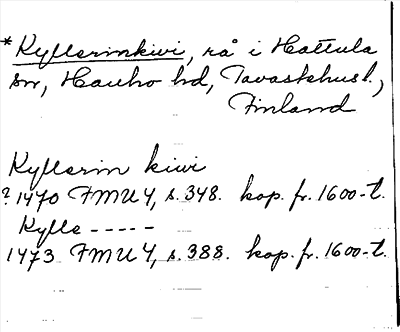 *Kyllerinkivi, rå i Hattula
sn, Hauho hd, Tavastehusl.,
Finland
Kyllerin kiwi
? 1470 FMU 4, s. 348. kop. fr. 1600-t.
Kylle -----
1473 FMU 4, s. 388. kop. fr. 1600-t.